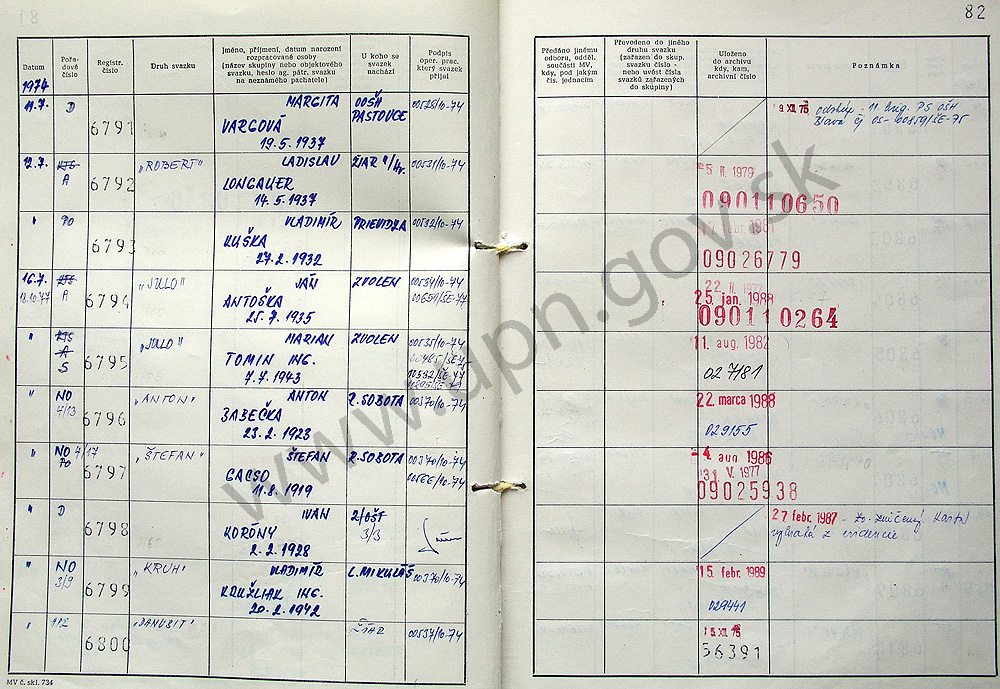 82
Datum
Pořadové číslo
Registr. číslo
Druh svazku
Jméno, příjmení, datum narození
rozpracované osoby
(název skupiny nebo objektového
svazku, heslo ag. pátr. svazku
na neznámého pachtele)
U koho se
svazek
nachází
Podpis
oper. prac.
který svazek
přijal
Předáno jinému
odboru, odděl.
součásti MV,
kdy, pod jakým
čís. jednacím
Převedeno do jiného
druhu svazku
(zařazen do skup.
svazku číslo -
nebo uvést čísla
svazků zařazených
do skupiny)
Uloženo
do archivu
kdy, kam,
archivní číslo
Poznámka
1974
11.7. D 6791 MARGITA VARGOVÁ 19.5.1937 OOŠH PASTOVCE 00525/10-74
9 XII 75 odstúp. 11. brig. PS OŠH
Blava čj OS-00859/ŠE-75
12.7. KTS A 6792 „ROBERT" LADISLAV LONGAUER 14.5.1937 ŽIAR n/Hr. 00531/10-74
25. II. 1979
090110650
" PO 6793 VLADIMÍR KUŠKA 27.2.1932 PRIEVIDZA 00532/10-74
09026779
16.7. 18.10.77 KTS A 6794 „JULO" JÁN ANTOŠKA 25.7.1935 ZVOLEN 00534/10-74
00659/ŠE-77
22. II. 1977
25. jan. 1988
090110264
" KTS A S 6795 „JULO" MARIAN TOMIN ING. 7.7.1943 ZVOLEN 00535/10-74
11. aug. 1982
027181
" NO 4/13 6796 „ANTON" ANTON BABEČKA 23.2.1923 R.SOBOTA 00370/10-74
22. marca 1988
029155
" NO 4/17 PO 6797 „ŠTEFAN" ŠTEFAN GACSO 11.8.1919 R.SOBOTA 00370/10-74
1986
31. V. 1977
09025938
" D 6798 IVAN KORÓNY 2.2.1928 2/OŠT 3/3
27. febr. 1987 - zo zničený. Karta
vybratá z evidencie
" NO 3/9 6799 „KRUH" VLADIMÍR KRUŽLIAK ING. 20.2.1942 L.MIKULÁŠ 00370/10-74
15. febr. 1989
029441
" 6800 „DANUBIT" ŽIAR 00537/10-74
15 XII 75
56391
MV č. skl. 734
www.upn.gov.sk